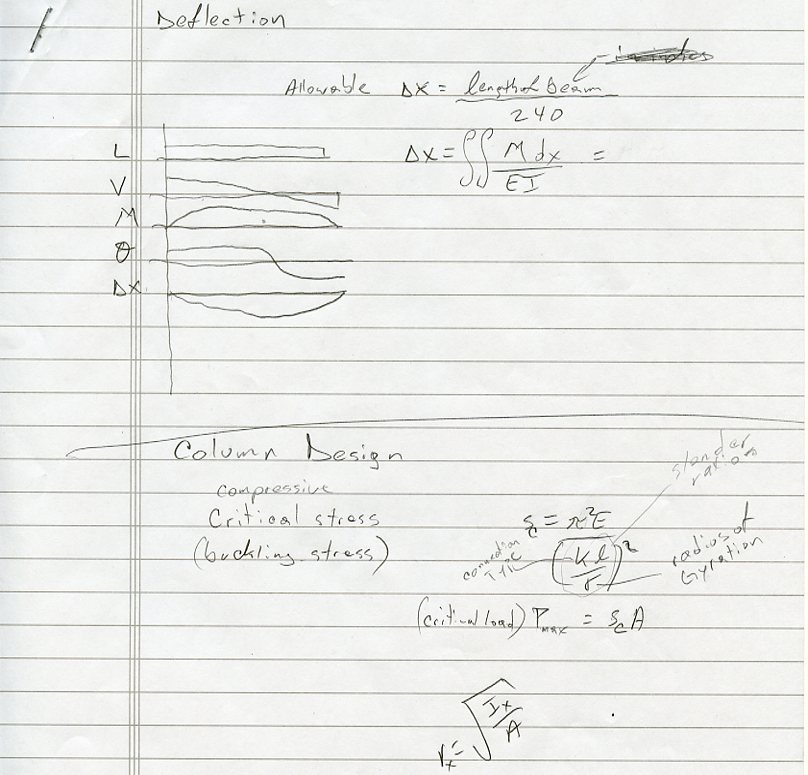 Deflection
Allowable Δx = length of beam
240
L
Δx = ∫∫ M dx =
EI
V
M
θ
Δx
Column Design
slender
ration
compressive
Critical stress
(buckling stress)
s_c = π²E
(Kl/r)²
connection
Type
radios of
Gyration
(critical load) P_max = s_c A
r_x = √(Ix/A)